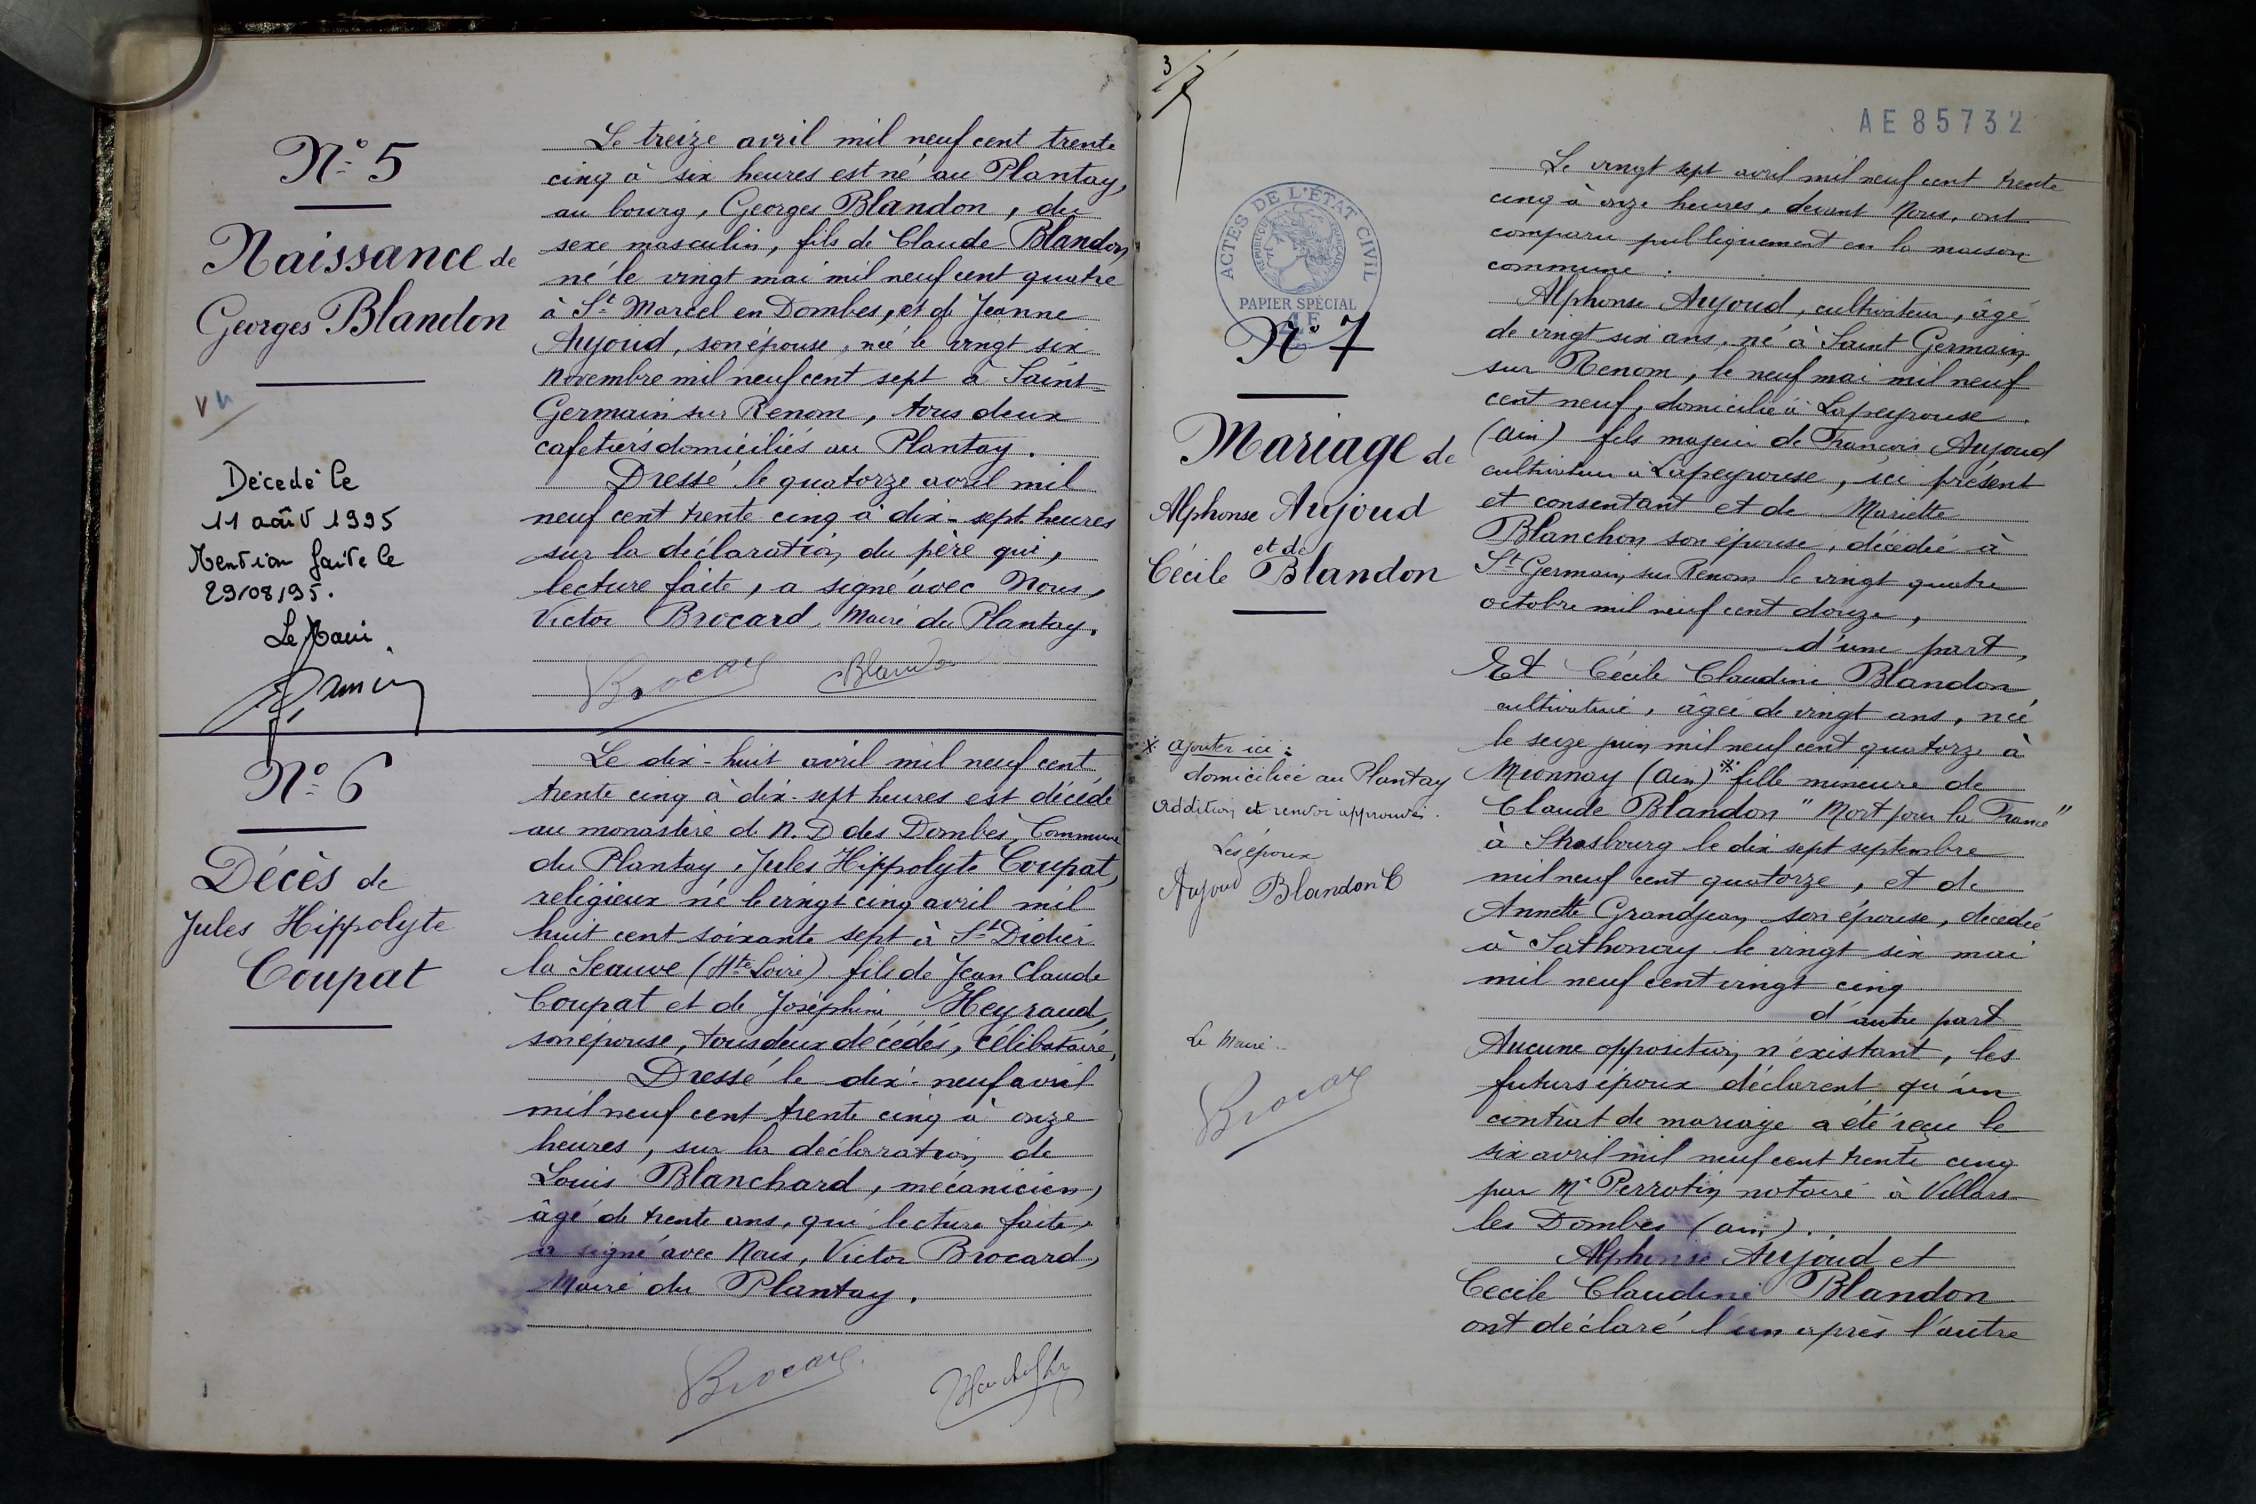 N° 5
Naissance de
Georges Blandon
Décédé le
11 août 1995
Mention faite le
29/08/95.
Le Maire
Le treize avril mil neuf cent trente
cinq à six heures est né au Plantay,
au bourg, Georges Blandon, du
sexe masculin, fils de Claude Blandon
né le vingt mai mil neuf cent quatre
à St Marcel en Dombes, et de Jeanne
Aujoud, son épouse, née le vingt six
Novembre mil neuf cent sept à Saint-
Germain sur Renom, tous deux
cafetiers domiciliés au Plantay.
Dressé le quatorze avril mil
neuf cent trente cinq à dix-sept heures
sur la déclaration du père qui,
lecture faite, a signé avec Nous,
Victor Brocard, Maire du Plantay.
Brocard Blandon
N° 6
Décès de
Jules Hippolyte
Coupat
Le dix-huit avril mil neuf cent
trente cinq à dix-sept heures est décédé
au monastère d N. D des Dombes, Commune
du Plantay, Jules Hippolyte Coupat,
religieux né le vingt cinq avril mil
huit cent soixante sept à St Didier
la Seauve (Hte Loire) fils de Jean Claude
Coupat et de Joséphine Heyraud,
son épouse, tous deux décédés, célibataire,
Dressé le dix-neuf avril
mil neuf cent trente cinq à onze
heures, sur la déclaration de
Louis Blanchard, mécanicien,
âgé de trente ans, qui lecture faite,
a signé avec Nous, Victor Brocard,
Maire du Plantay.
Brocard
3/7
AE 85732
ACTES DE L'ÉTAT CIVIL
RÉPUBLIQUE FRANÇAISE
PAPIER SPÉCIAL
N° 7
Mariage de
Alphonse Aujoud
et de
Cécile Blandon
* ajouter ici :
domiciliée au Plantay
addition et renvoi approuvés.
Les époux
Aujoud Blandon C
Le Maire
Brocard
Le vingt sept avril mil neuf cent trente
cinq à onze heures, devant Nous, ont
comparu publiquement en la maison
commune.
Alphonse Aujoud, cultivateur, âgé
de vingt six ans, né à Saint Germain
sur Renom, le neuf mai mil neuf
cent neuf, domicilié à Lapeyrouse
(Ain) fils majeur de François Aujoud
cultivateur à Lapeyrouse, ici présent
et consentant et de Mariette
Blanchon son épouse, décédée à
St Germain sur Renom le vingt quatre
octobre mil neuf cent douze,
d'une part,
Et Cécile Claudine Blandon,
cultivatrice, âgée de vingt ans, née
le seize juin mil neuf cent quatorze à
Mionnay (Ain) * fille mineure de
Claude Blandon "Mort pour la France"
à Strasbourg le dix sept septembre
mil neuf cent quatorze, et de
Annette Grandjean son épouse, décédée
à Sathonay le vingt six mai
mil neuf cent vingt cinq
d'autre part
Aucune opposition n'existant, les
futurs époux déclarent qu'un
contrat de mariage a été reçu le
six avril mil neuf cent trente cinq
par Me Perrotin notaire à Villars
les Dombes (ain).
Alphonse Aujoud et
Cecile Claudine Blandon
ont déclaré l'un après l'autre